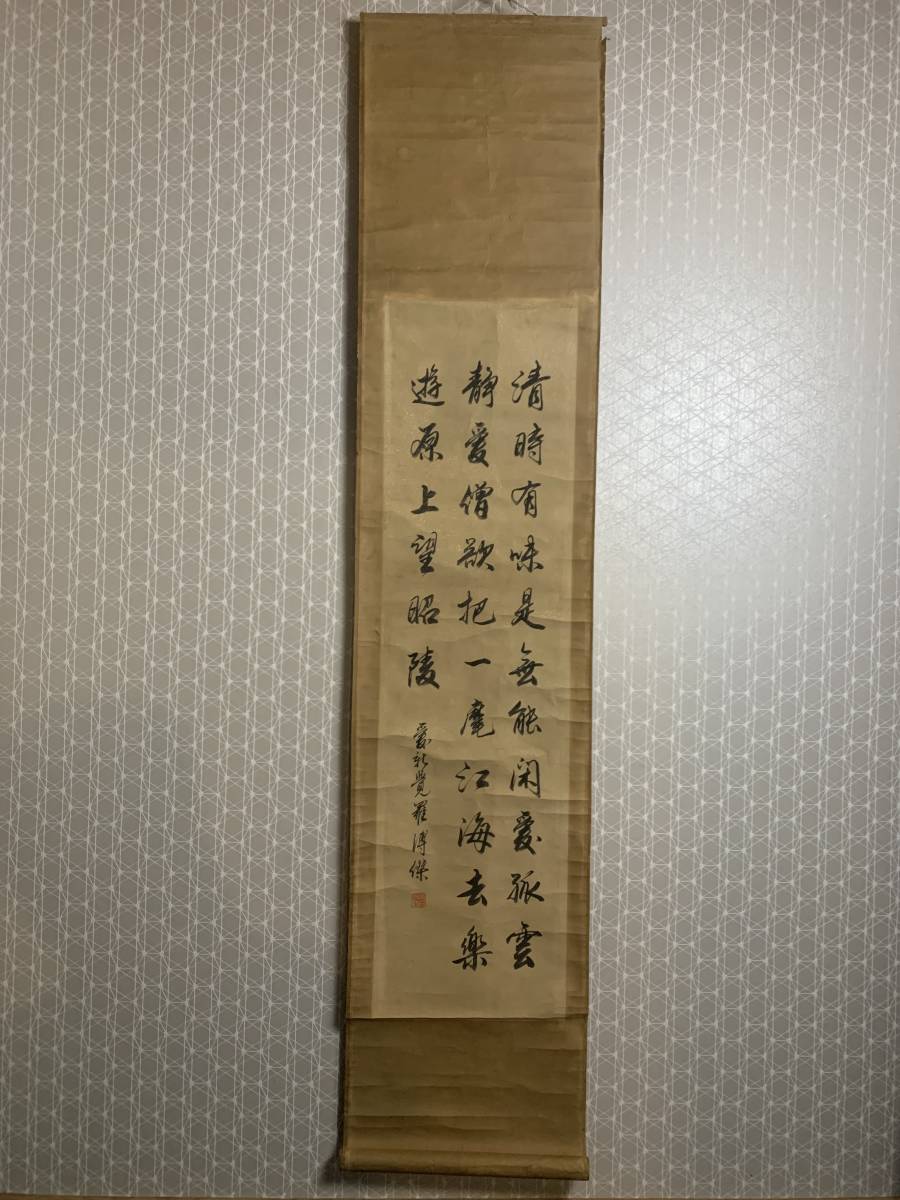 清時有味是無能閑愛孤雲
靜愛僧欲把一麾江海去樂
遊原上望昭陵
愛新覺羅溥傑